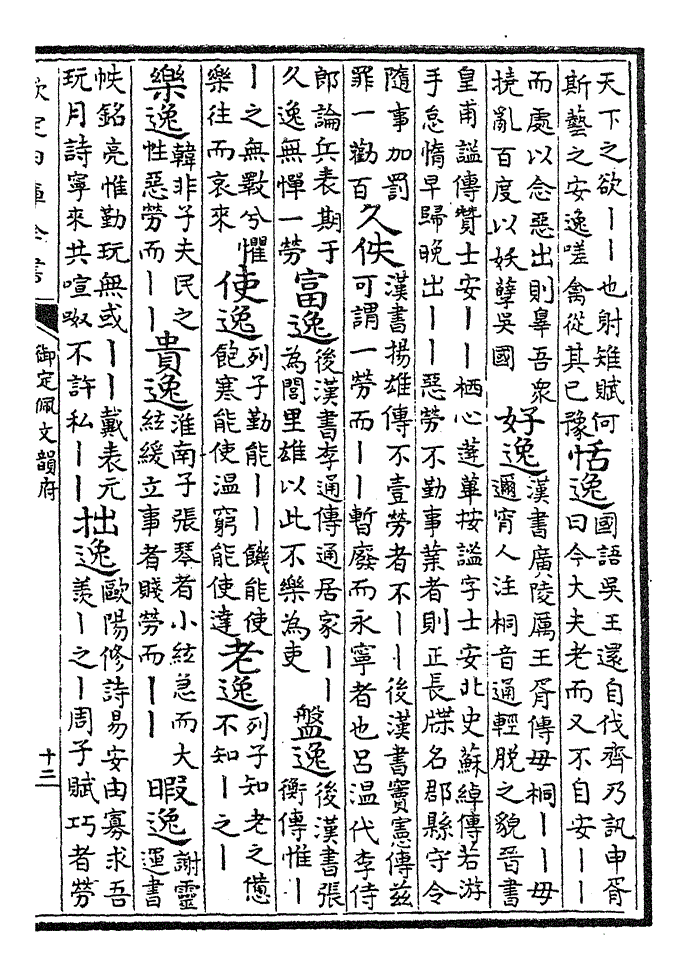 天下之欲丨丨也射雉賦何
斯藝之安逸嗟禽從其已豫
恬逸
國語吳王還自伐齊乃訊申胥
曰今大夫老而又不自安丨丨
而處以念惡出則辠吾衆
撓亂百度以妖孽吳國
好逸
漢書廣陵厲王胥傳毋桐丨丨毋
邇宵人注桐音通輕脫之貌晉書
皇甫謐傳贊士安丨丨栖心蓬蓽按謐字士安北史蘇綽傳若游
手怠惰早歸晚出丨丨惡勞不勤事業者則正長牒名郡縣守令
隨事加罰
罪一勸百
久佚
漢書揚雄傳不壹勞者不丨丨後漢書竇憲傳茲
可謂一勞而丨丨暫廢而永寧者也呂温代李侍
郎論兵表期于
久逸無憚一勞
富逸
後漢書李通傳通居家丨丨
為閭里雄以此不樂為吏
盤逸
後漢書張
衡傳惟丨
丨之無斁兮懼
樂往而哀來
使逸
列子勤能丨丨饑能使
飽寒能使温窮能使達
老逸
列子知老之憊
不知丨之丨
樂逸
韓非子夫民之
性惡勞而丨丨
貴逸
淮南子張琴者小絃急而大
絃緩立事者賤勞而丨丨
暇逸
謝靈
運書
帙銘亮惟勤玩無或丨丨戴表元
玩月詩寧來共喧呶不許私丨丨
拙逸
歐陽修詩易安由寡求吾
羨丨之丨周子賦巧者勞
欽定四庫全書
御定佩文韻府
十三